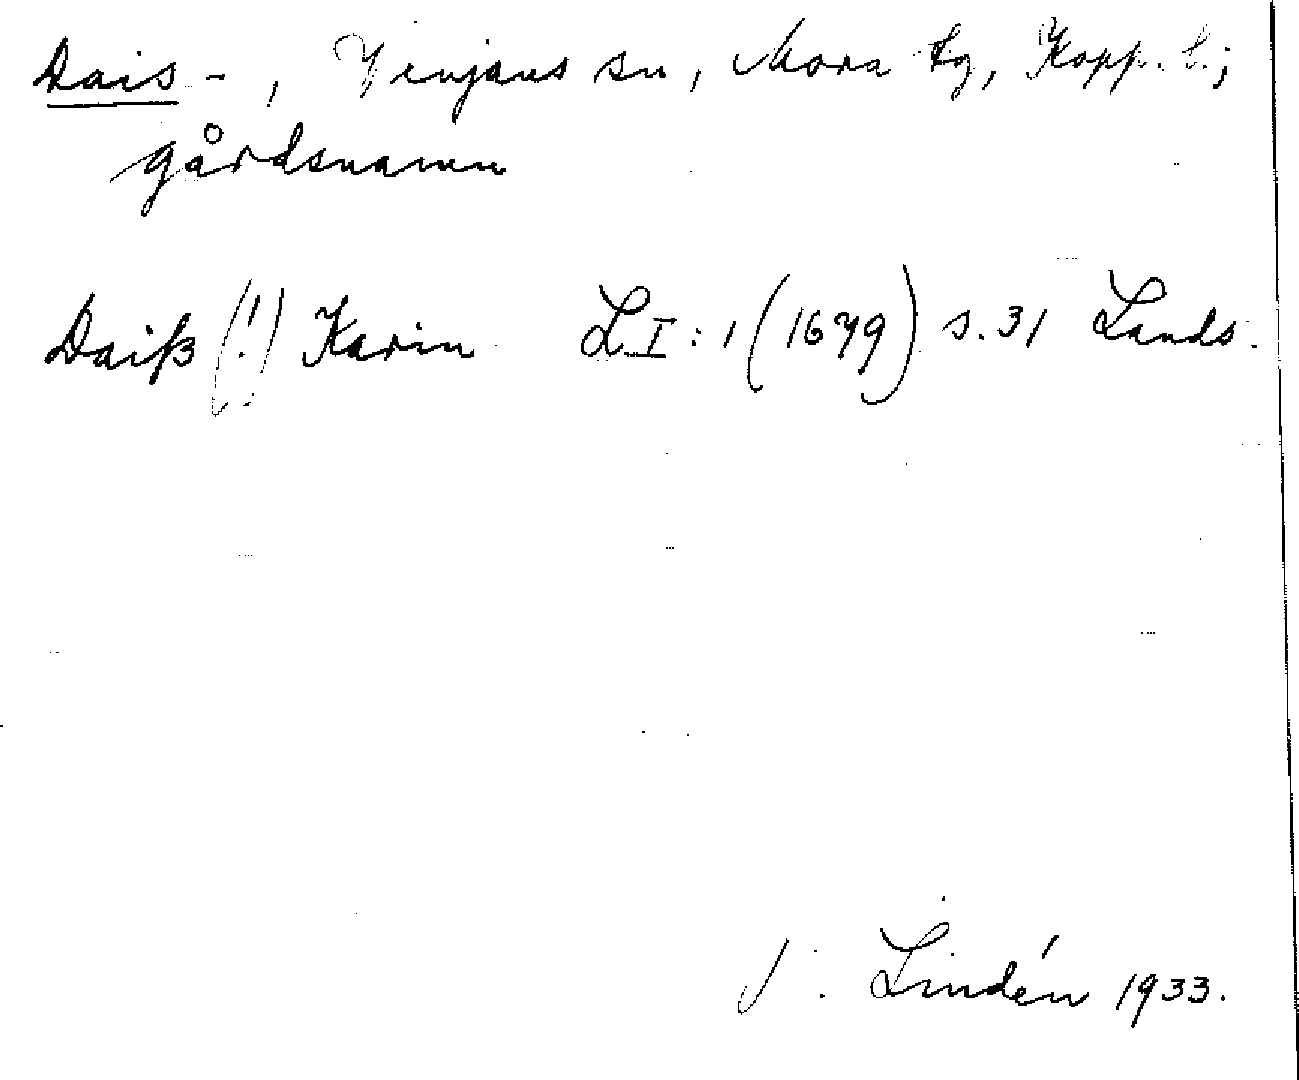 Dais-, Venjans sn, Mora tg, Kopp. l.;
gårdsnamn
Daiß (!) Karin LI:1 (1679) s. 31 Lands.
J. Lindén 1933.